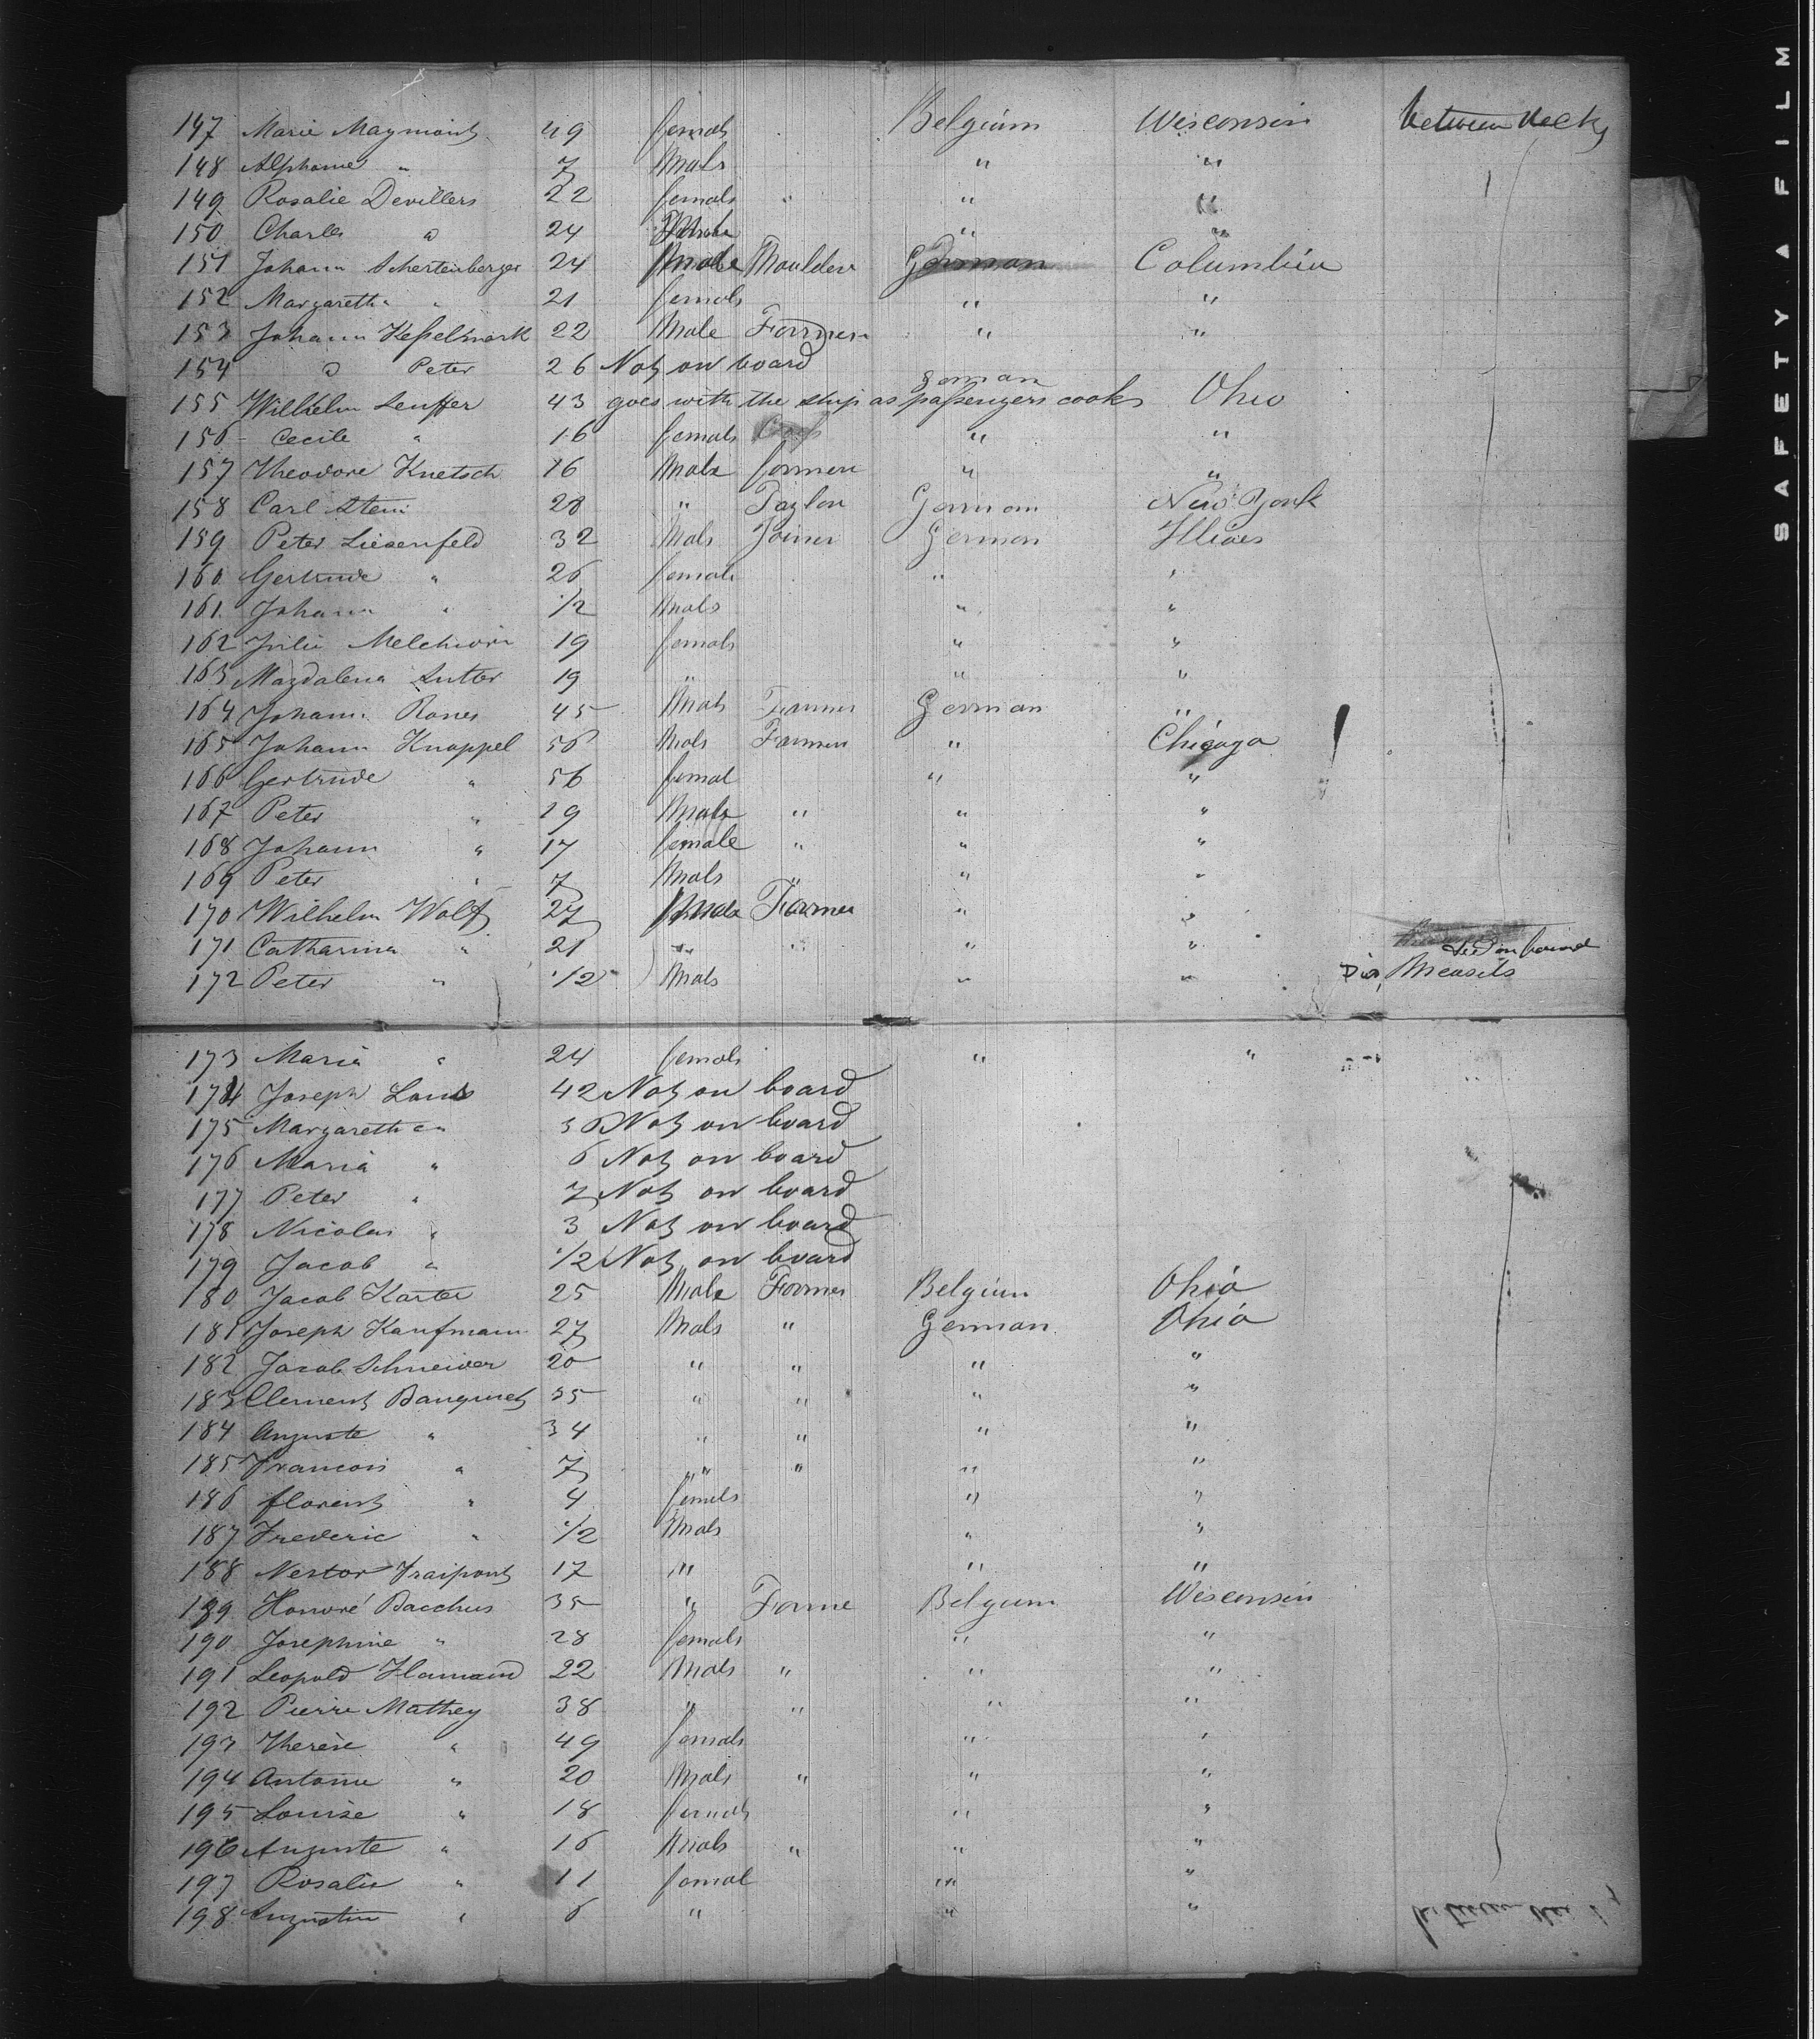 147 Marie Maymont 49 female Belgium Wisconsin between decks
148 Alphonse " 7 Male " "
149 Rosalie Devillers 22 female " " "
150 Charles " 24 " "
151 Johann Schertenberger 24 Male Moulder German Columbia
152 Margaretha " 21 female " "
153 Johann Keßelmark 22 Male Farmer " "
154 " Peter 26 Not on board
155 Wilhelm Leuffer 43 goes with the ship as passengers cook German Ohio
156 Cecile " 16 female " "
157 Theodore Knetsch 16 Male farmer " "
158 Carl Stein 28 " Taylor German New York
159 Peter Liesenfeld 32 Male Joiner German Illioes
160 Gertrude " 26 female " "
161 Johann " 1/2 Male " "
162 Julie Melchiors 19 female " "
163 Magdalena Sutter 19 " " "
164 Johann Rones 45 Male Farmer German "
165 Johann Knoppel 56 Male Farmer " Chicago
166 Gertrude " 56 femal " "
167 Peter " 19 Male " " "
168 Johann " 17 female " " "
169 Peter " 7 Male " " "
170 Wilhelm Wolf 27 Male Farmer " "
171 Catharina " 21 " " " " died on board
172 Peter " 1/2 Male " " Measels
173 Maria " 24 female " "
174 Joseph Louis 42 Not on board
175 Margaretha " Not on board
176 Maria " 6 Not on board
177 Peter " 7 Not on board
178 Nicolas " 3 Not on board
179 Jacob " 1/2 Not on board
180 Jacob Karter 25 Male Farmer Belgium Ohio
181 Joseph Kaufmann 27 Male " German Ohio
182 Jacob Schneider 20 " " " "
183 Clement Banquet 35 " " " "
184 Auguste " 34 " " " "
185 Francois " 7 " " " "
186 florent " 4 female " "
187 Frederic " 1/2 Male " "
188 Nestor Fraipont 17 " " "
189 Honoré Bacchus 35 " Farme Belgium Wisconsin
190 Josephine " 28 female " "
191 Leopold Hamand 22 Male " " "
192 Pierre Mathey 38 " " " "
193 Therèse " 49 female " "
194 Antoine " 20 Male " " "
195 Louise " 18 female " "
196 Auguste " 16 Male " " "
197 Rosalie " 11 femal " "
198 Augustin " 6 " " "
SAFETY A FILM